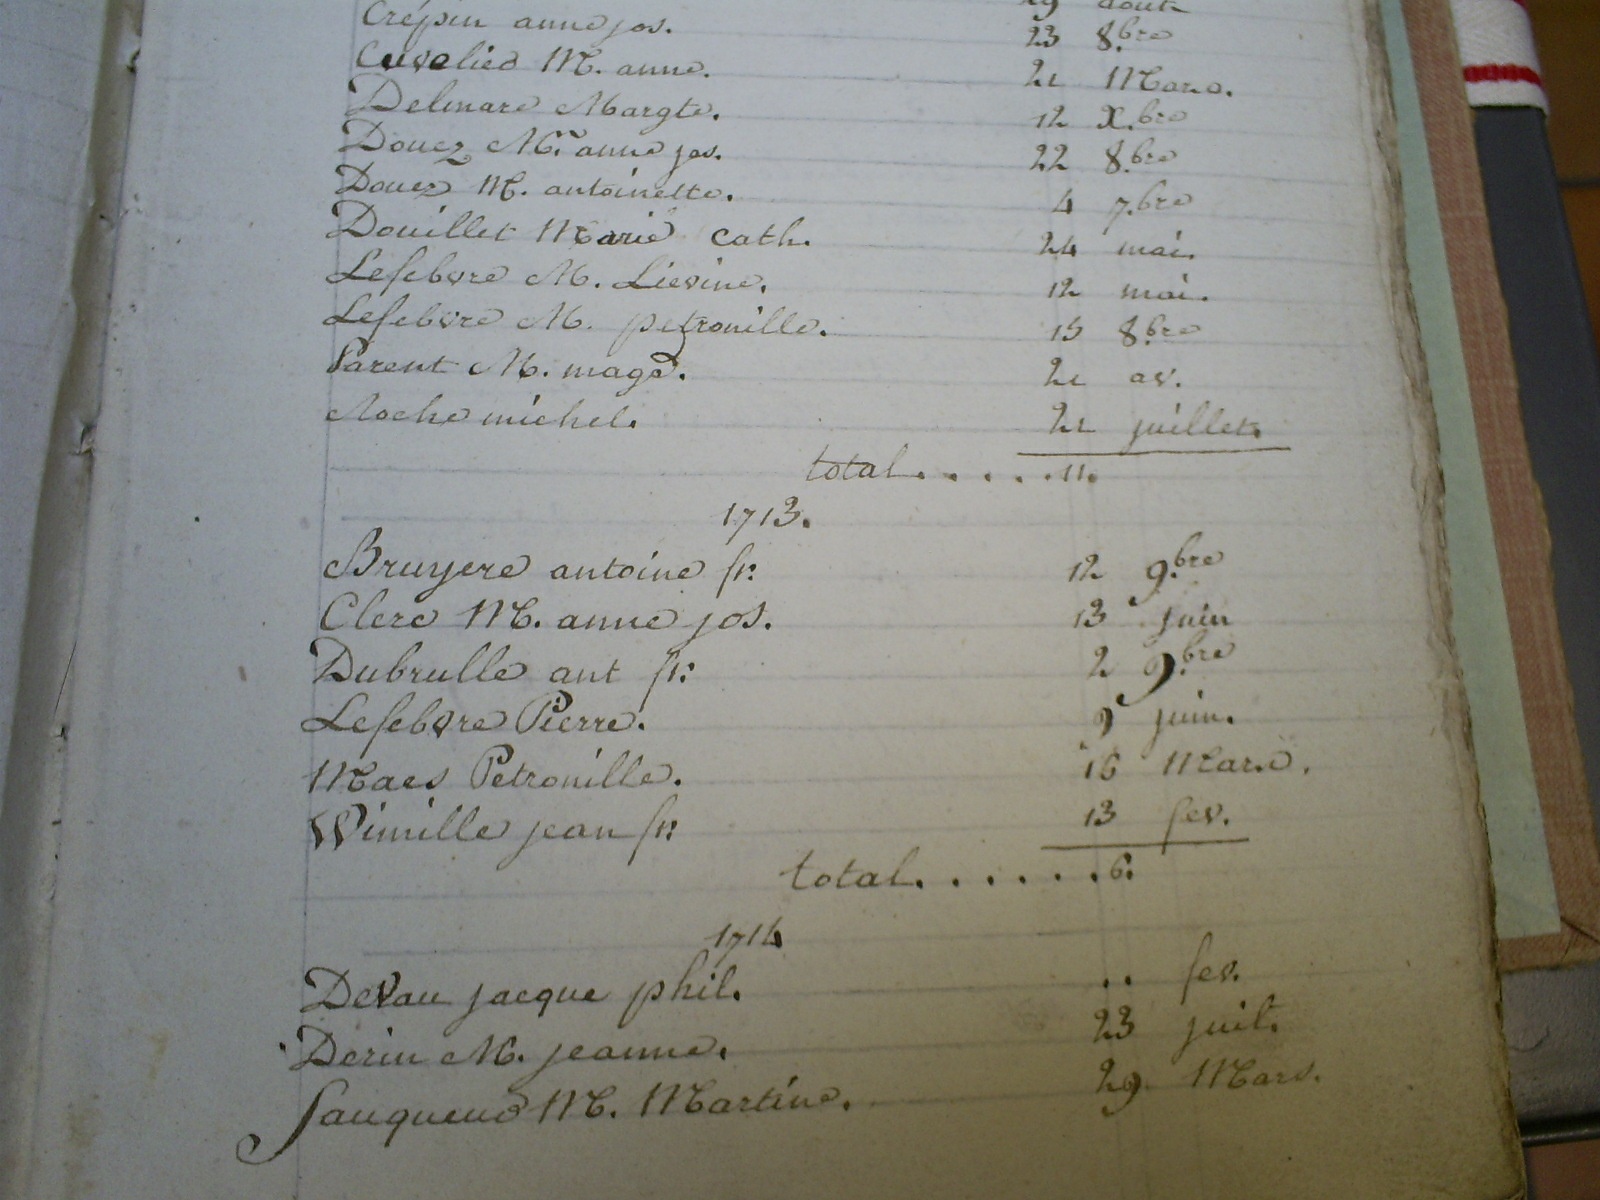 Crépin anne jos. 23 8.bre
Cuvelier M. anne. 21 Mars.
Delmare Margte. 12 X.bre
Douez M. anne jos. 22 8.bre
Douez M. antoinette. 4 7.bre
Douillet Marie cath. 24 mai.
Lefebvre M. Lievine. 12 mai.
Lefebvre M. petronille. 15 8.bre
Parent M. magd. 21 av.
Roche michel. 21 juillet.
total......11.
1713.
Bruyere antoine fr: 12 9.bre
Clerc M. anne jos. 13 juin
Dubrulle ant fr: 2 9.bre
Lefebvre Pierre. 9 juin.
Maes Petronille. 16 Mars.
Wimille jean fr: 13 fev.
total.......6.
1714
Devau jacque phil. .. fev.
Derin M. jeanne. 23 juil.
M. Martine. 29 Mars.